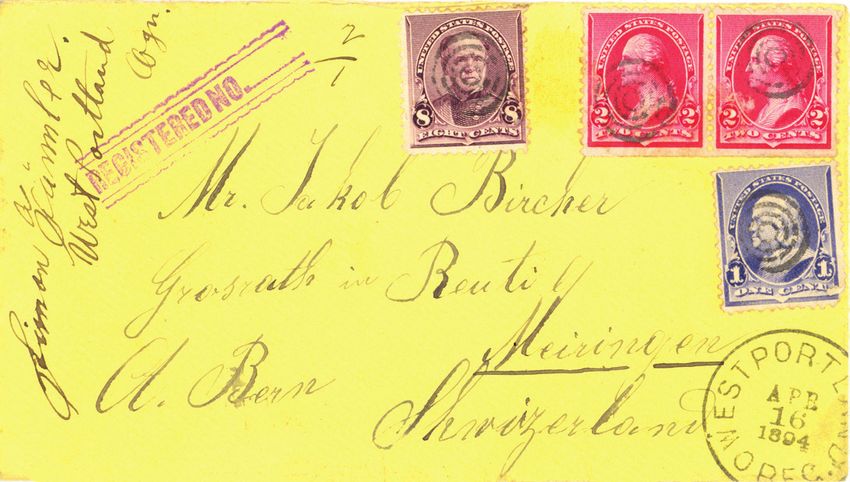 Simon Zäumler.
West Portland
Ogn.
REGISTERED NO.
2/1
UNITED STATES POSTAGE
8 8
EIGHT CENTS
UNITED STATES POSTAGE
2 2
TWO CENTS
UNITED STATES POSTAGE
2 2
TWO CENTS
Mr. Jakob Bircher
Grosrath in Reuti
Meiringen
A. Bern
Shwizerland
UNITED STATES POSTAGE
1 1
ONE CENT
WEST PORTLAND.
APR
16
1894
OREG.